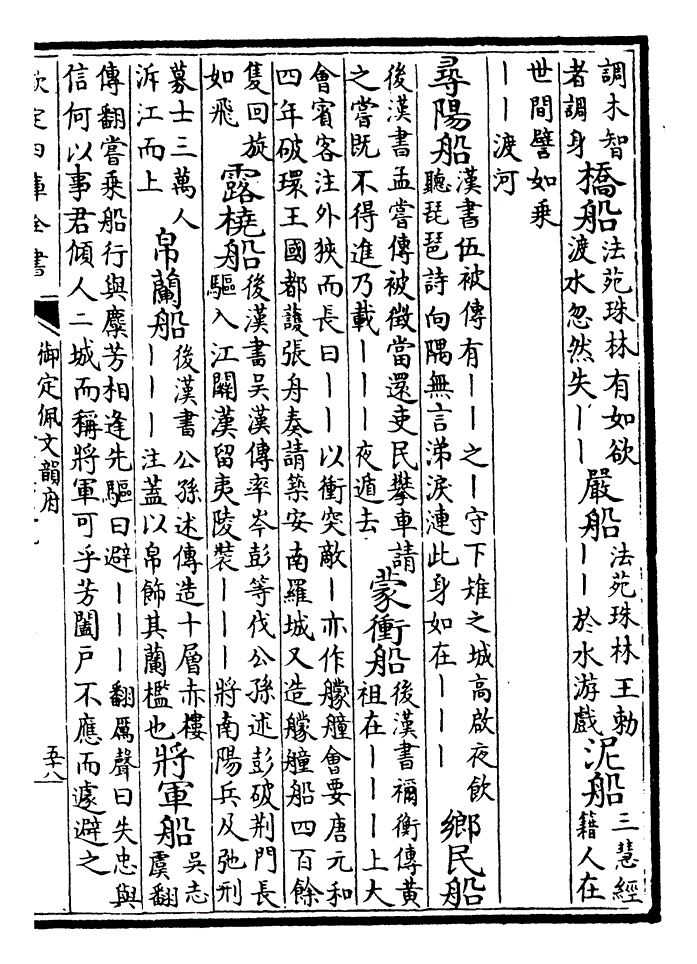 調木智者調身 橋船 法苑珠林有如欲渡水忽然失丨丨 嚴船 法苑珠林王勅丨丨於水游戲 泥船 三慧經籍人在
世間譬如乘丨丨渡河
尋陽船 漢書伍被傳有丨丨之丨守下雉之城高啟夜飲聽琵琶詩向隅無言涕淚漣此身如在丨丨丨 鄉民船
後漢書孟嘗傳被徵當還吏民攀車請之嘗既不得進乃載丨丨丨夜遁去 蒙衝船 後漢書禰衡傳黃祖在丨丨丨上大
會賓客注外狹而長曰丨丨以衝突敵丨亦作艨艟會要唐元和四年破環王國都護張舟奏請築安南羅城又造艨艟船四百餘
隻回旋如飛 露橈船 後漢書吳漢傳率岑彭等伐公孫述彭破荆門長驅入江關漢留夷陵裝丨丨丨將南陽兵及弛刑
募士三萬人泝江而上 帛蘭船 後漢書公孫述傳造十層赤樓丨丨丨注蓋以帛飾其蘭檻也 將軍船 吳志虞翻
傳翻嘗乘船行與麋芳相逢先驅曰避丨丨丨翻厲聲曰失忠與信何以事君傾人二城而稱將軍可乎芳闔戶不應而遽避之
欽定四庫全書 御定佩文韻府 五十八